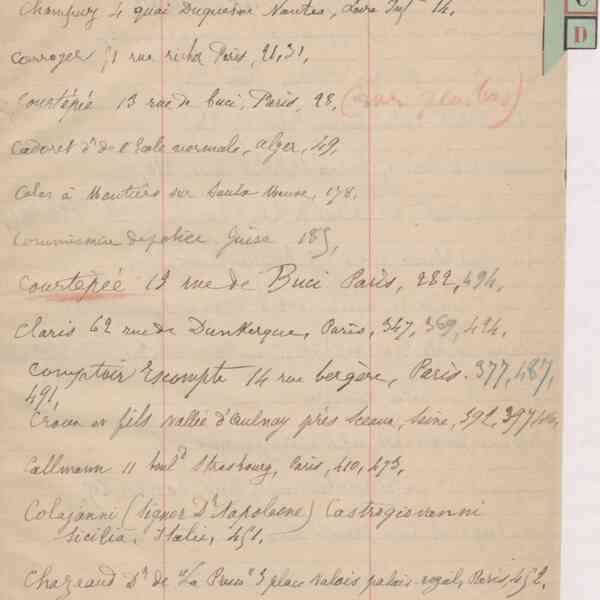 C
D
Champury 4 quai Duquesne Nantes, Loire Infre 14,
rue Paris, 21, 31,
Courtépée 13 rue de buci, Paris, 28, (
Cadoret dr de l'Ecole normale, alger, 49,
à Moutiers sur Saulx Meuse, 178,
Commissaire de police Guise 185,
Courtépée 13 rue de Buci Paris, 282, 494,
Claris 62 rue de Dunkerque, Paris, 347, 369, 424,
Comptoir Escompte 14 rue bergère, Paris. 377, 487,
491,
et fils vallée d'aulnay près Sceaux, Seine, 392, 397
Callmann 11 bould Strasbourg, Paris, 410, 473,
Colajanni (Signor Dr Napoleone) Castrogiovanni
Sicilia, Italie, 451,
Chazeaud Dr de "La " 3 place valois palais-royal, Paris, 452,